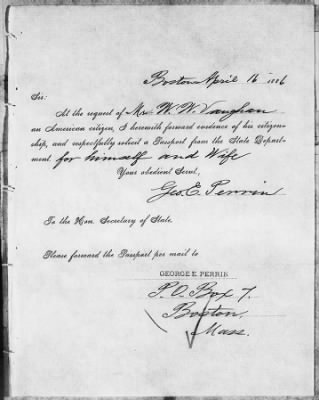 Boston April 16 1886
Sir:
At the request of Mr. W. W. Vaughan
an American citizen, I herewith forward evidence of his citizen-
ship, and respectfully solicit a Passport from the State Depart-
ment for himself and Wife
Your obedient Servt,
Geo. E. Perrin
To the Hon. Secretary of State.
Please forward the Passport per mail to
GEORGE E. PERRIN
P.O. Box 7.
Boston.
Mass.